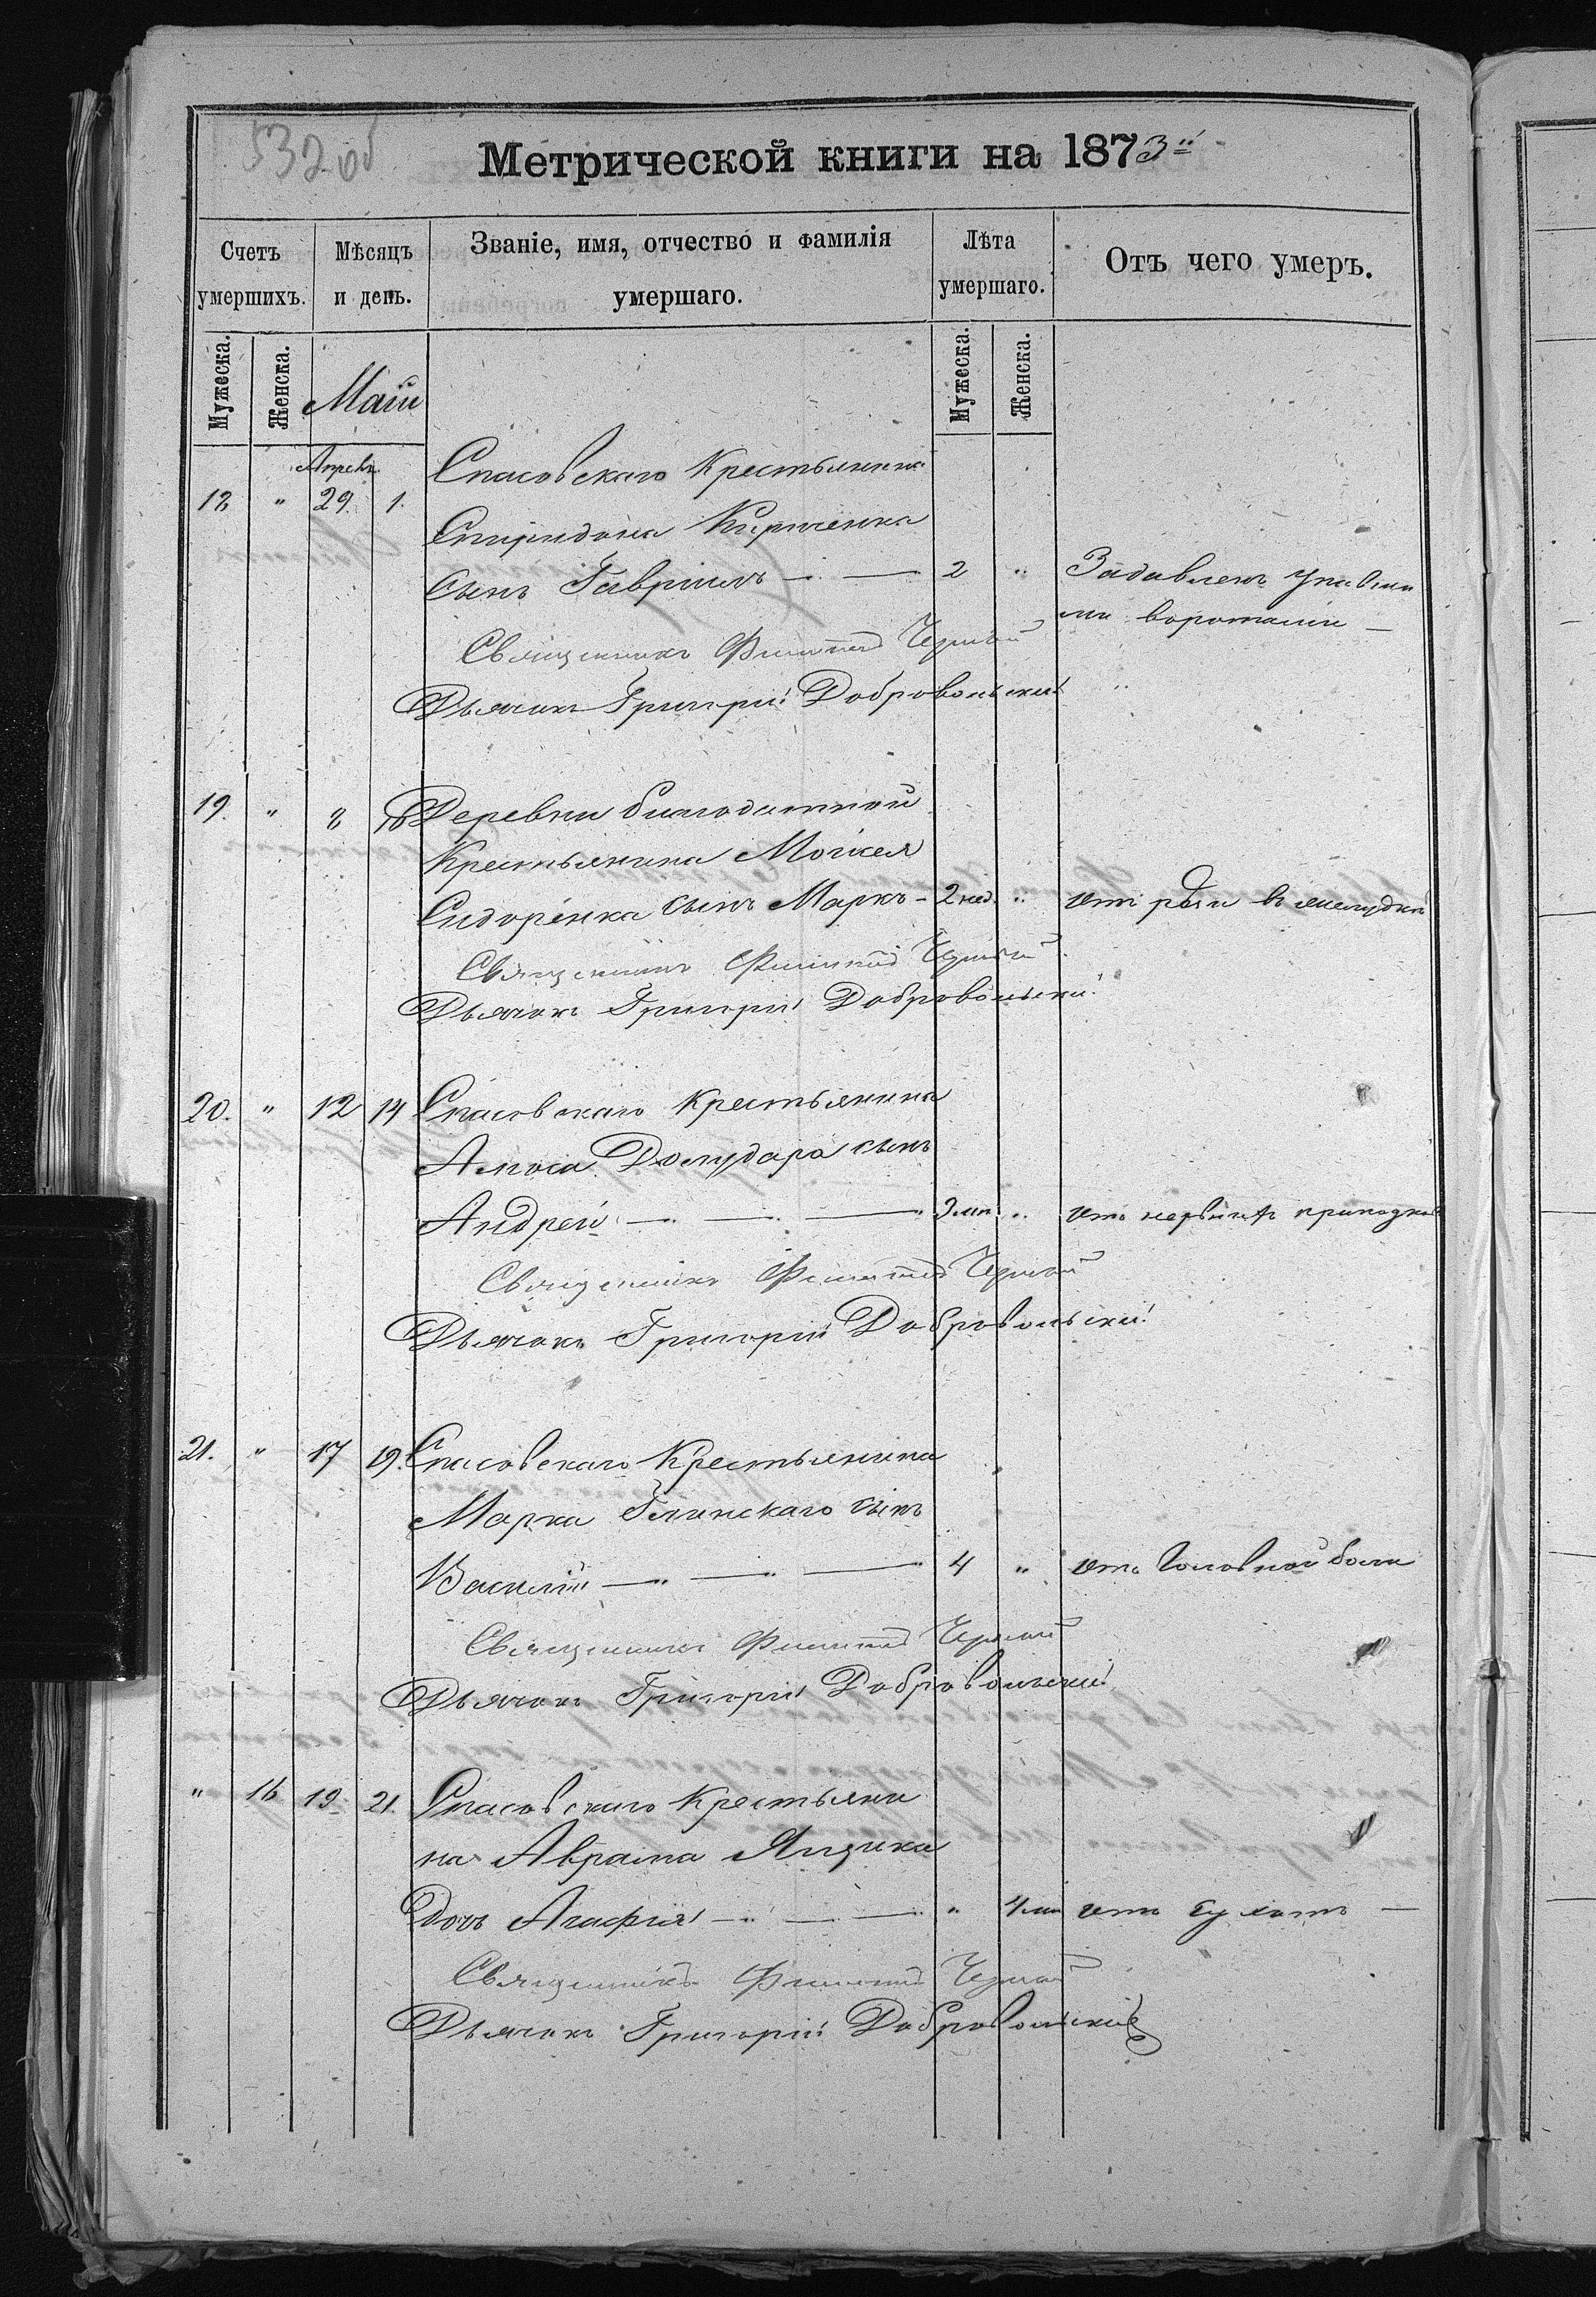 532 об
Метрической книги на 1873й
Счетъ умершихъ.
Мѣсяцъ и день.
Званіе, имя, отчество и фамилія умершаго.
Лѣта умершаго.
Отъ чего умеръ.
Мужеска.
Женска.
Маій
Мужеска.
Женска.
Апрель
18 " 29 1. Спасовскаго Крестьянина
Спиридона Кириченка
сынъ Гавріилъ 2 " Задавленъ упавши
ми воротами
Священникъ Филиппъ Черный
Дьячокъ Григорій Добровольскій
19. " 8 10 Деревни благодатной
Крестьянина Моисея
Сидоренка сынъ Маркъ - 2 нед. " отъ рези въ желудкѣ
Священникъ Филиппъ Черный
Дьячокъ Григорій Добровольскій
20. " 12 14 Спасовскаго Крестьянина
Амоса сынъ
Андрей " отъ нервныхъ припадковъ
Священникъ Филиппъ Черный
Дьячокъ Григорій Добровольскій
21. " 17 19. Спасовскаго Крестьянина
Марка Глинскаго сынъ
Василій 4 " отъ головной боли
Священникъ Филиппъ Черный
Дьячокъ Григорій Добровольскій
" 16 19 21. Спасовскаго Крестьяни
на Аврама Ящика
дочь Агафія " 4 отъ сухотъ
Священникъ Филиппъ Черный
Дьячокъ Григорій Добровольскій